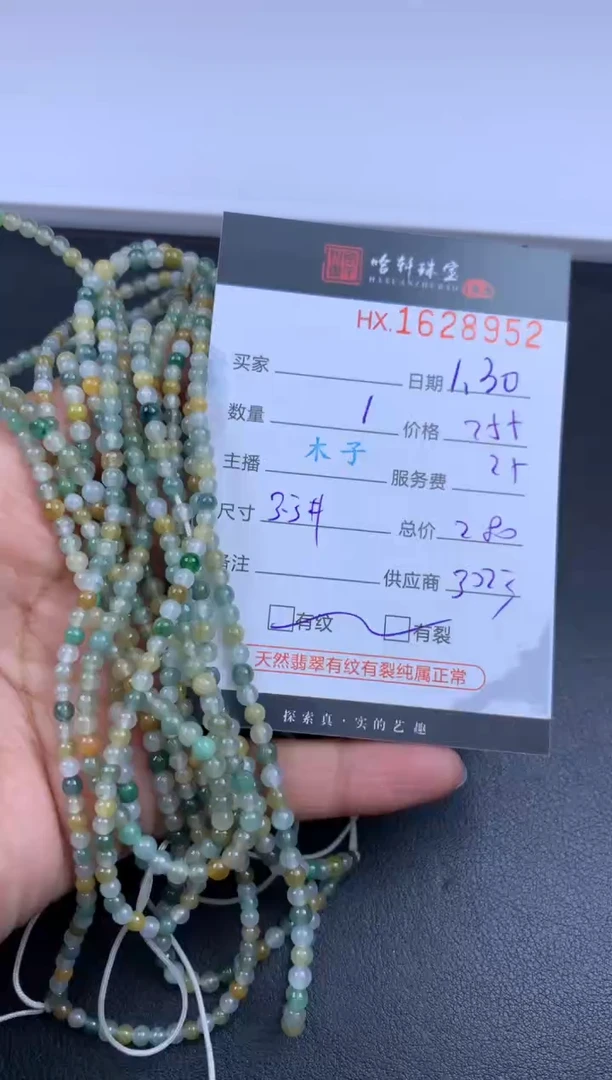 哈轩珠宝
HX.1628952
买家 日期 1.30
数量 1 价格 255
主播 木子 服务费 25
尺寸 3.3# 总价 280
备注 供应商 302号
有纹 有裂
天然翡翠有纹有裂纯属正常
探索真·实的艺趣